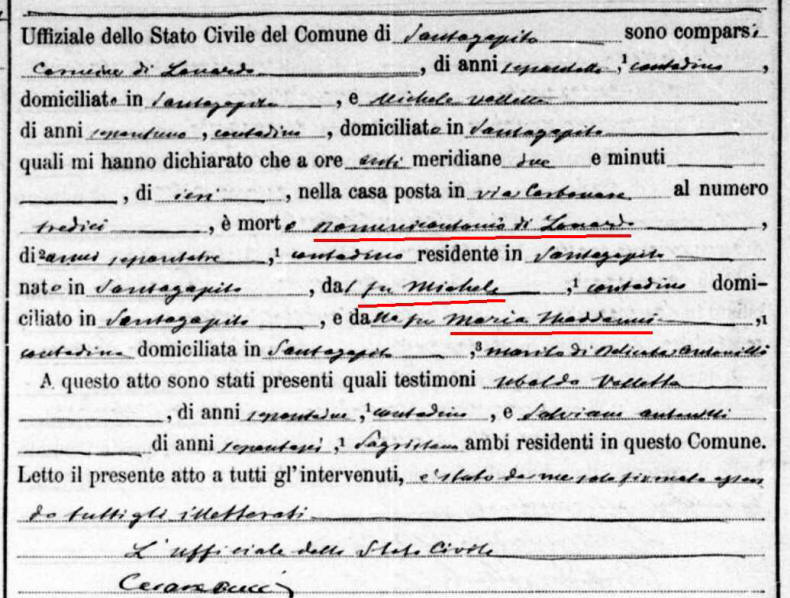 Uffiziale dello Stato Civile del Comune di Santagapito sono comparsi
Carmine di Lonardo, di anni, ¹ contadino,
domiciliato in Santagapito, e Michele Valletta
di anni, contadino, domiciliato in Santagapito
quali mi hanno dichiarato che a ore anti meridiane due e minuti
, di ieri, nella casa posta in via Carbonare al numero
tredici, è morto di Lonardo,
di ² anni settantatre, ¹ contadino residente in Santagapito
nato in Santagapito, dal fu Michele, ¹ contadino domi-
ciliato in Santagapito, e dalla fu Maria, ¹
contadina domiciliata in Santagapito, ³ marito di Antonilli
A questo atto sono stati presenti quali testimoni Ubaldo Valletta
, di anni, ¹ contadino, e Salviano Antonilli
di anni, ¹ Sagristano ambi residenti in questo Comune.
Letto il presente atto a tutti gl'intervenuti, è stato da me solo firmato essen
do tutti gli illetterati
L'ufficiale dello Stato Civile
Cesare Pucci